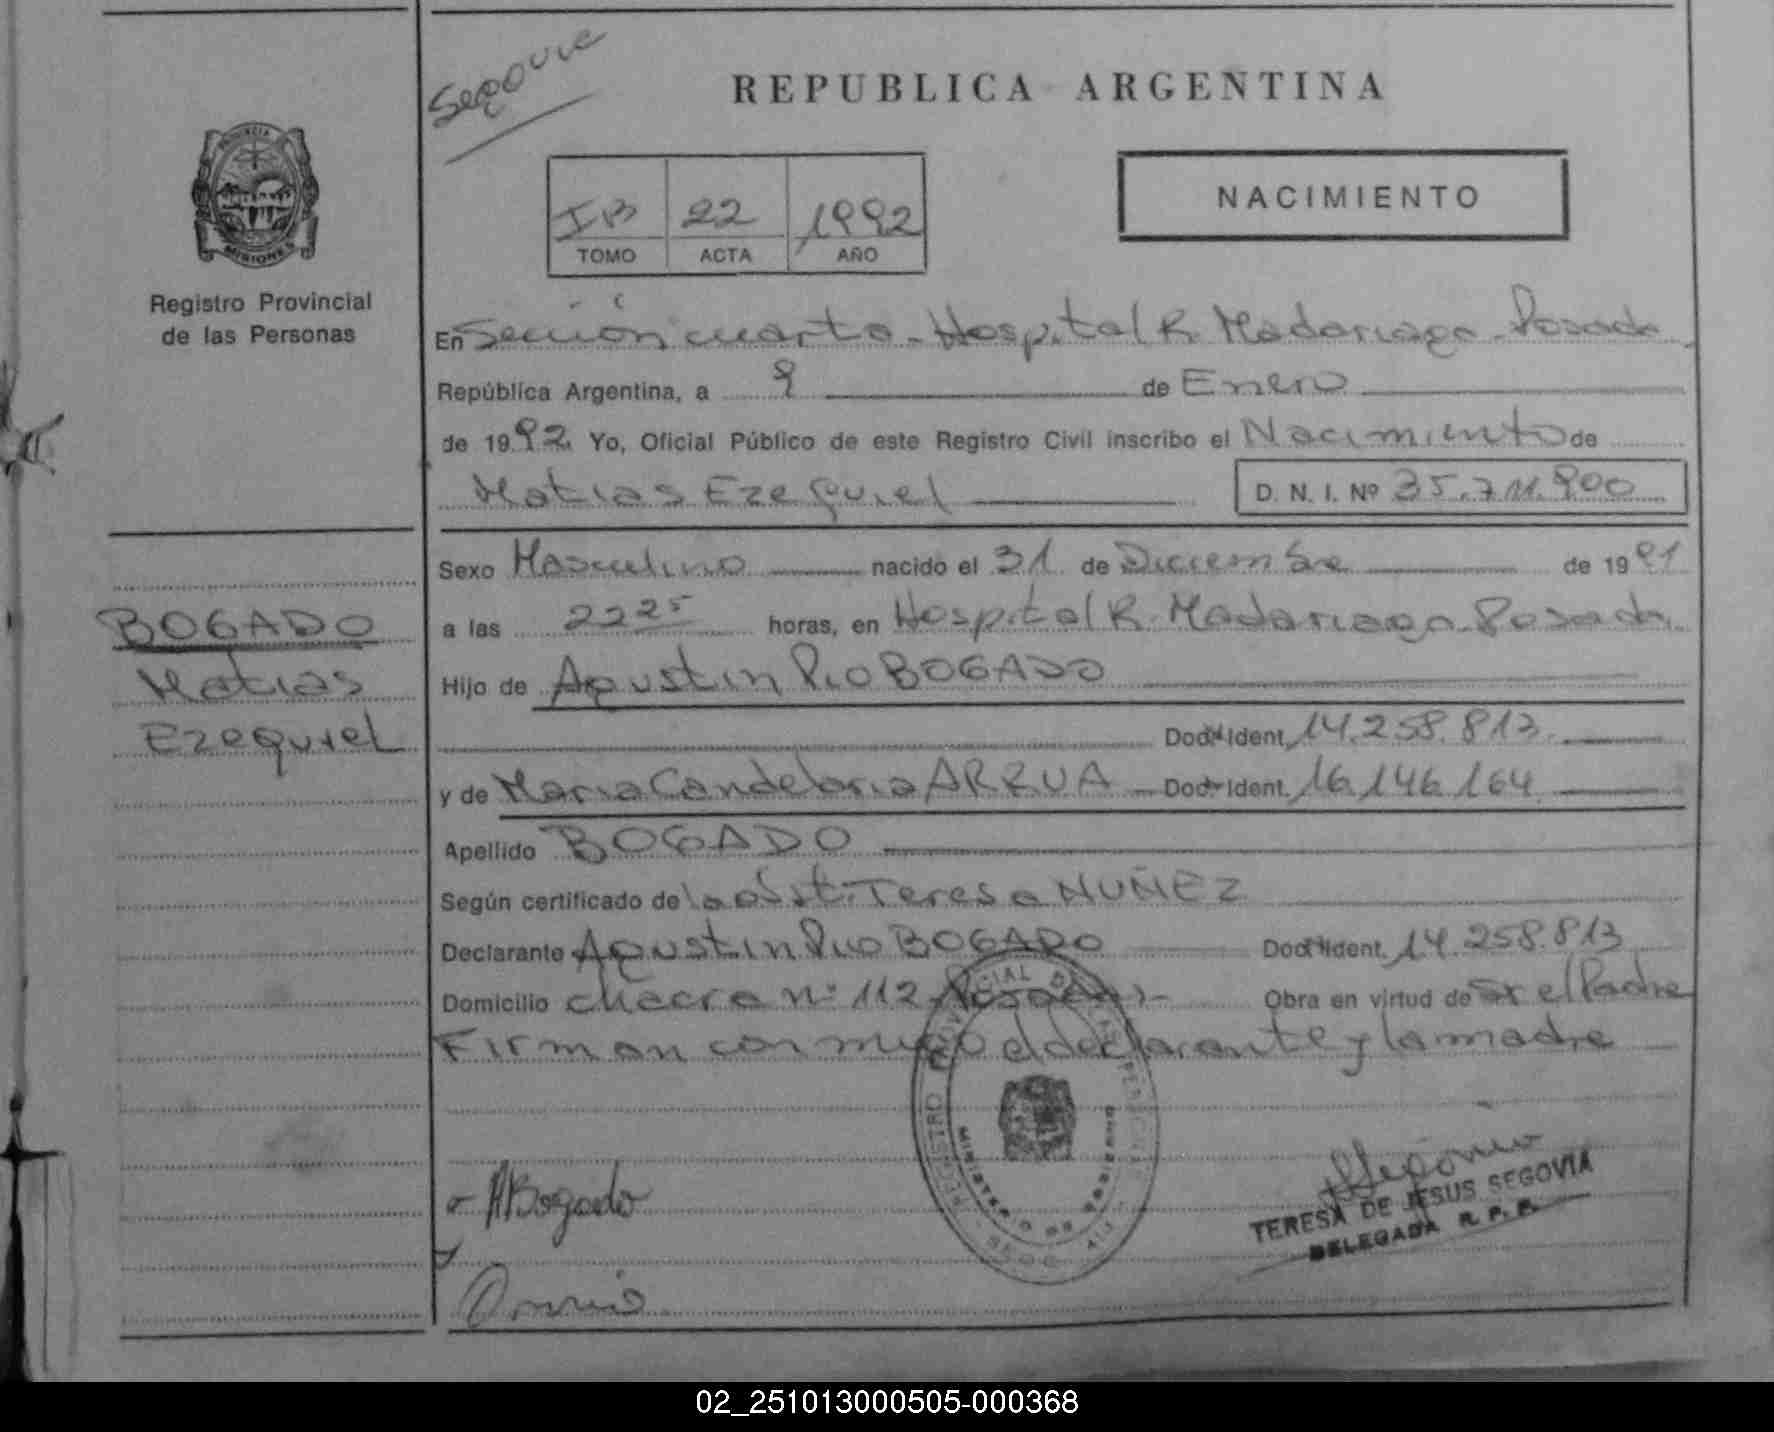 REPUBLICA ARGENTINA
PROVINCIA
MISIONES
Registro Provincial
de las Personas
IB 22 1992
TOMO ACTA AÑO
NACIMIENTO
En Sección cuarta - Hospital R. Madariaga - Posadas
República Argentina, a 9 de Enero
de 1992 Yo, Oficial Público de este Registro Civil inscribo el Nacimiento de
Matias Ezequiel D. N. I. Nº 35.711.900
Sexo Masculino nacido el 31 de Diciembre de 1991
a las 22 25 horas, en Hospital R. Madariaga - Posadas
BOGADO
Matias
Ezequiel
Hijo de Agustin Pio BOGADO
Doc. Ident. 14.258.813
y de Maria Candelaria ARRUA Doc. Ident. 16.146.164
Apellido BOGADO
Según certificado de la obst. Teresa NUÑEZ
Declarante Agustin Pio BOGADO Doc. Ident. 14.258.813
Domicilio chacra nº 112 - Posadas - Obra en virtud de Sr el Padre
Firman conmigo el declarante y la madre
ABogado
TERESA DE JESUS SEGOVIA
DELEGADA R. P. P.
02_251013000505-000368